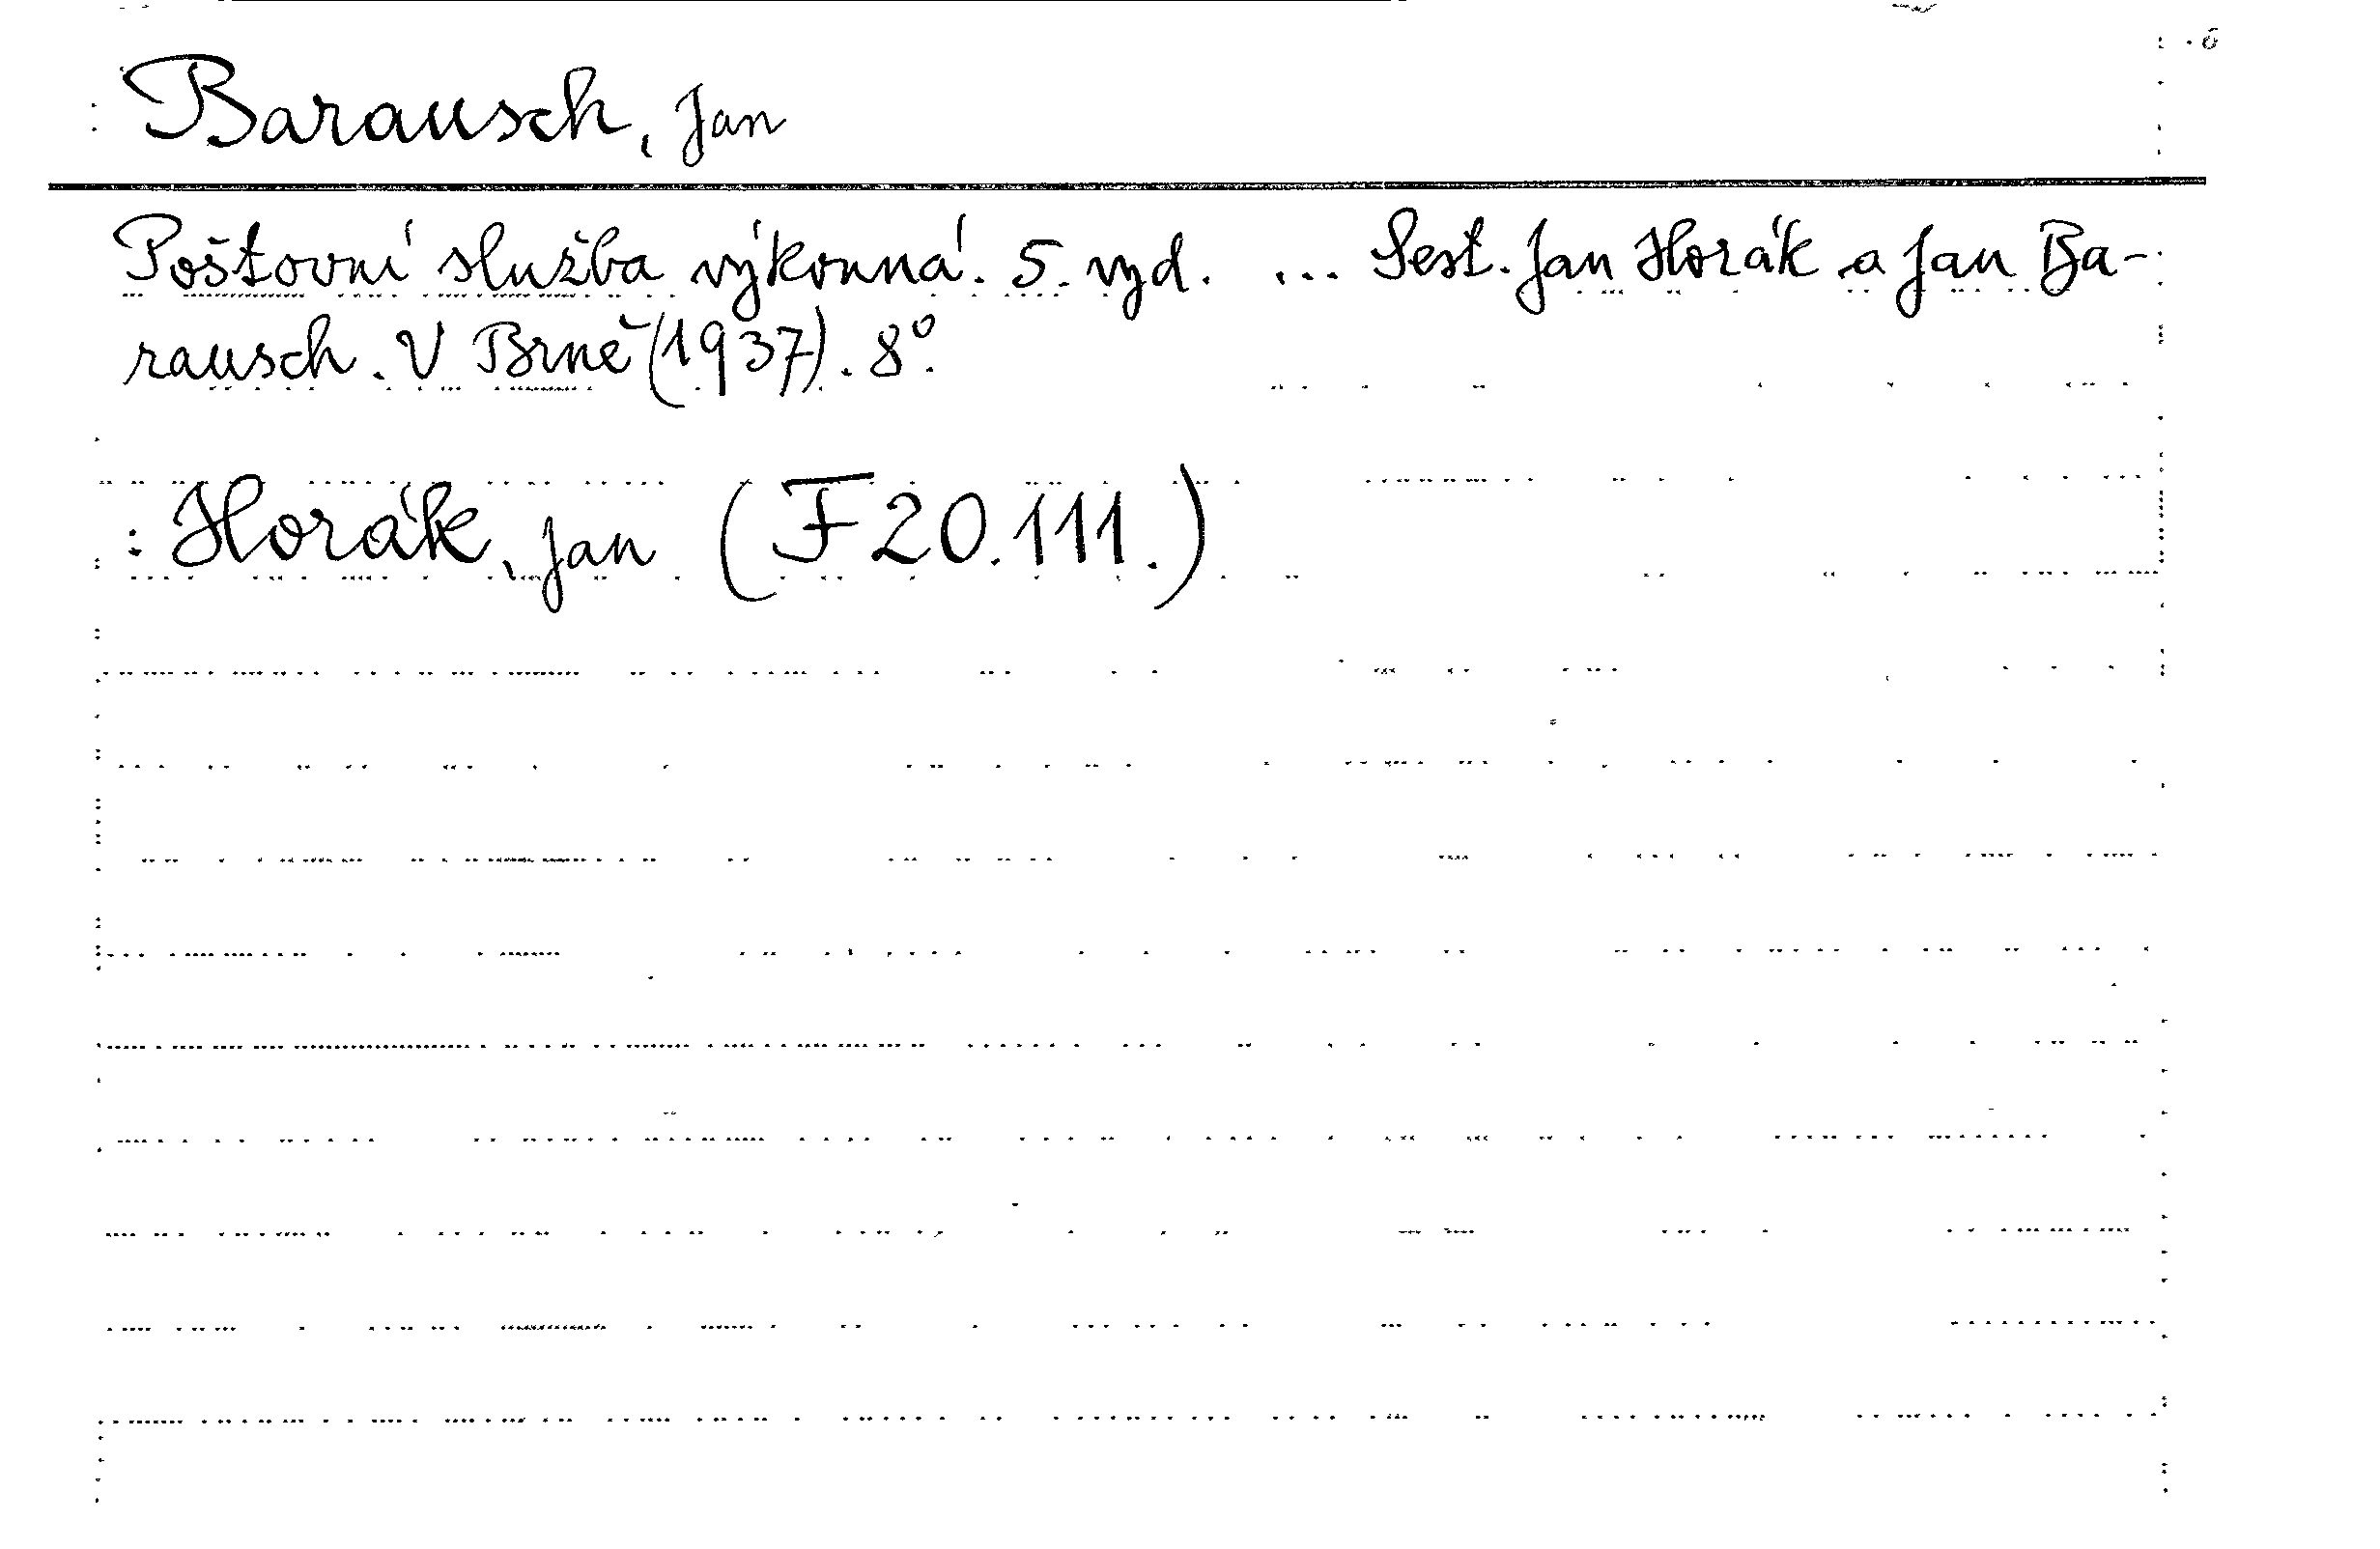 Barausch, Jan
Poštovní služba výkonná. 5. vyd. ... Sest. Jan Horák a Jan Ba-
rausch. V Brně (1937). 8°.
: Horák, Jan (F 20.111.)